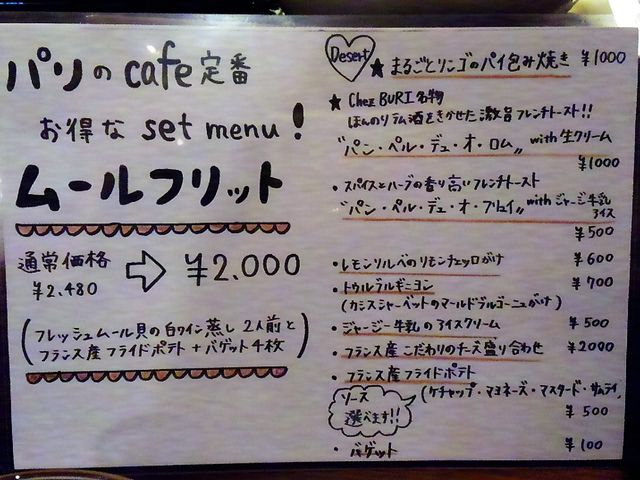 パリの cafe 定番
お得な set menu!
ムールフリット
通常価格
¥2,480
¥2,000
(フレッシュムール貝の白ワイン蒸し 2人前と
フランス産フライドポテト + バゲット4枚)
Desert
★まるごとリンゴのパイ包み焼き ¥1000
★ Chez BURI 名物
ほんのりラム酒をきかせた激旨フレンチトースト!!
"パン・ペル・デュ・オ・ロム" with 生クリーム
¥1000
・スパイスとハーブの香り高いフレンチトースト
"パン・ペル・デュ・オ・フリュイ" with ジャージー牛乳
アイス
¥500
・レモンソルベのリモンチェッロがけ ¥600
・トゥルブルギニヨン ¥700
(カシスシャーベットのマールドブルゴーニュがけ)
・ジャージー牛乳のアイスクリーム ¥500
・フランス産こだわりのチーズ盛り合わせ ¥2000
・フランス産フライドポテト
ソース
選べます!!
(ケチャップ・マヨネーズ・マスタード・サムライ)
¥500
・バゲット ¥100